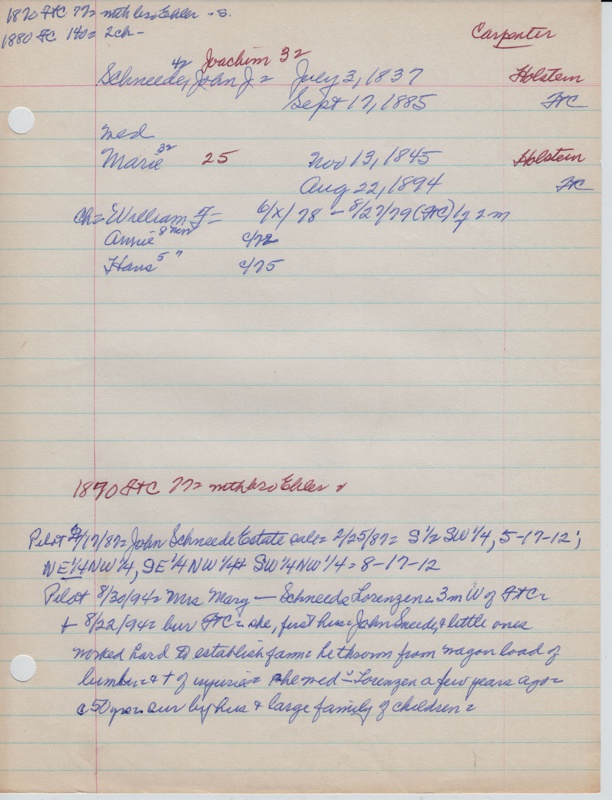 1870 FtC 77= mth bro Ehler - s.
1880 FC 140= 2ch-
Carpenter
Joachim 32
Schneede, 42 John J. = July 3, 1837 Holstein
Sept 17, 1885 FtC
med
Marie 32 25 Nov 13, 1845 Holstein
Aug 22, 1894 FC
Ch= William F = 6/X/78 - 8/27/79 (FtC) 1y 2m
Annie 8 c/72
Hans 5 " c/75
1870 FtC 77= mth bro Ehler
Pilot 2/17/87= John Schneede Estate sale= 2/25/87= S 1/2 SW 1/4, 5-17-12;
NE 1/4 NW 1/4, SE 1/4 NW 1/4 + SW 1/4 NW 1/4 = 8-17-12
Pilot 8/30/94= Mrs Marg - Schneede Lorenzen = 3m W of FtC=
+ 8/22/94= bur FtC= she, first hus= John Sneede, & little ones
worked hard to establish farm= he thrown from wagon load of
lumber= & + of injuries= she med - Lorenzen a few years ago=
c 50 yrs= sur by hus & large family of children=